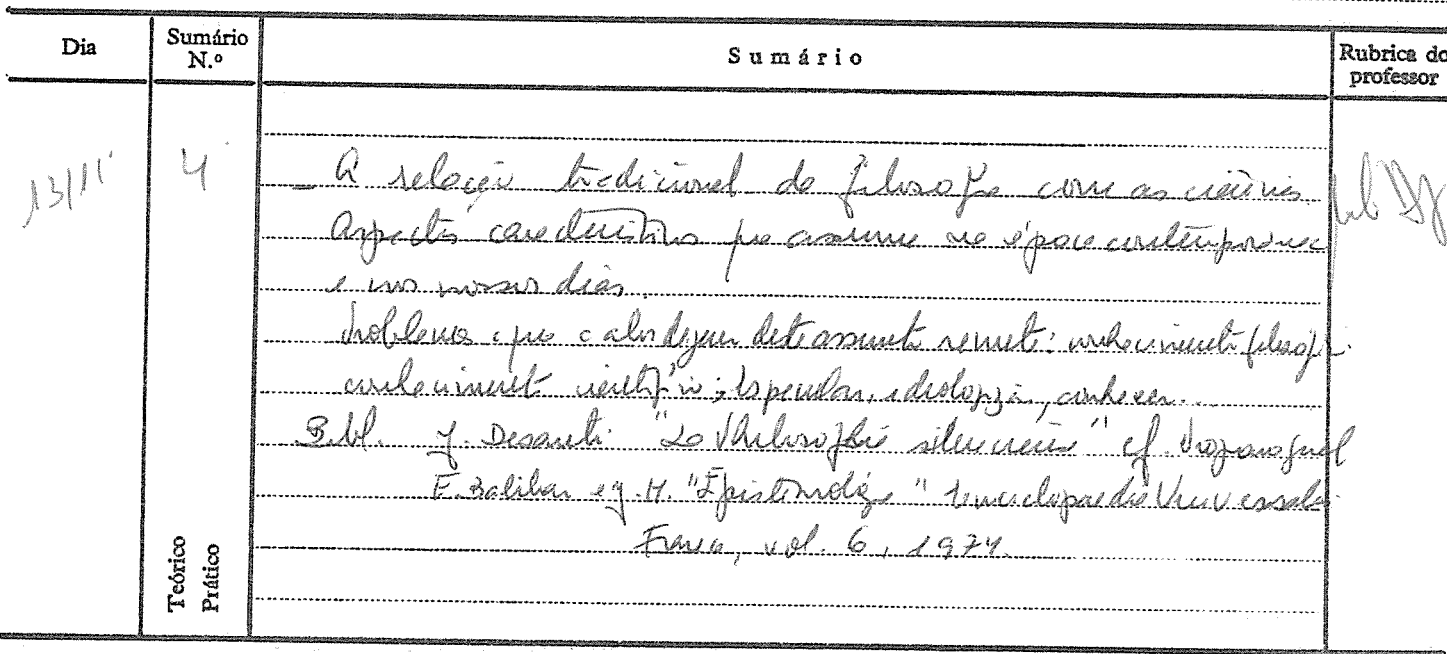 Dia
Sumário N.º
Sumário
Rubrica do professor
13/11
4
- A relação tradicional da filosofia com as ciências
Aspectos característicos que assume na época contemporânea
e nos nossos dias.
Problemas a que a abordagem deste assunto remete: conhecimento filosófi.
conhecimento científico; especular, ideologia, conhecer..
Bibl. J. Desanti "La Philosophie silencieuse" cf.
E. Balibar e J. M. "Épistémologie" Encyclopaedia Universalis
France, vol. 6, 1974.
Teórico
Prático